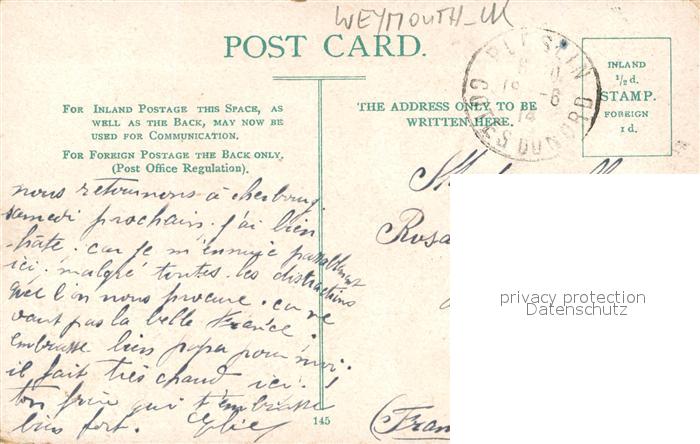 WEYMOUTH-UK
POST CARD.
PLESLIN
COTES DU NORD
18 -6
14
INLAND
½d.
STAMP.
FOREIGN
1d.
FOR INLAND POSTAGE THIS SPACE, AS
WELL AS THE BACK, MAY NOW BE
USED FOR COMMUNICATION.
FOR FOREIGN POSTAGE THE BACK ONLY.
(Post Office Regulation).
THE ADDRESS ONLY TO BE
WRITTEN HERE.
nous retournons à cherbourg
samedi prochain. j'ai bien
hâte. car je m'ennuie passablement
ici. malgré toutes les distractions
que l'on nous procure. ca ne
vaut pas la belle France!
embrasse bien papa pour moi.
il fait très chaud ici!
ton frère qui t'embrasse
bien fort.
Rosa
(Fran
145
privacy protection
Datenschutz